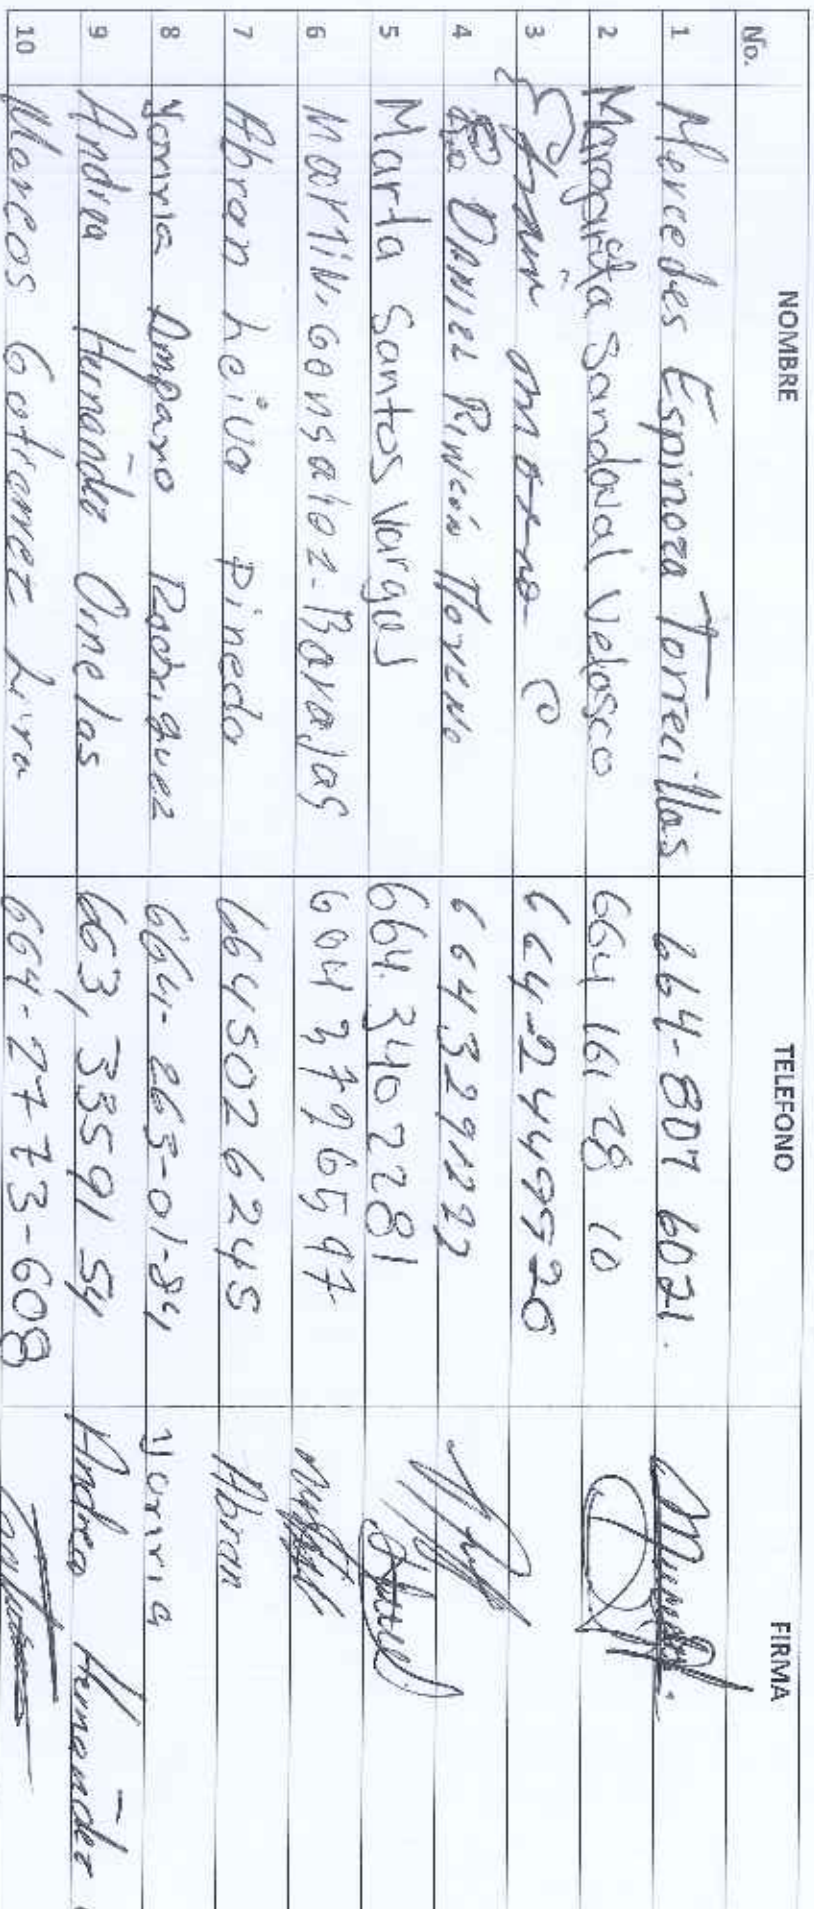 No. NOMBRE TELEFONO FIRMA
1 Mercedes Espinoza Torrecillas 664-807 6021.
2 Margarita Sandoval Velasco 664 161 28 10
3 Efrain moreno 664-2449526
4 DANIEL RINCÓN MORENO 664 329 1222
5 Marta Santos Vargas 664 340 2281
6 MARTIN. GONSALOZ-Barajas 664 3726597
7 Abran Leiva Pinedo 664502 6245 Abran
8 Yorivia Amparo Rodriguez 664-263-01-84 Yorivia
9 Andrea Hernández Ornelas 663, 33591 54 Andrea Hernández
10 Marcos Gotierrez Lira 664-2773-608